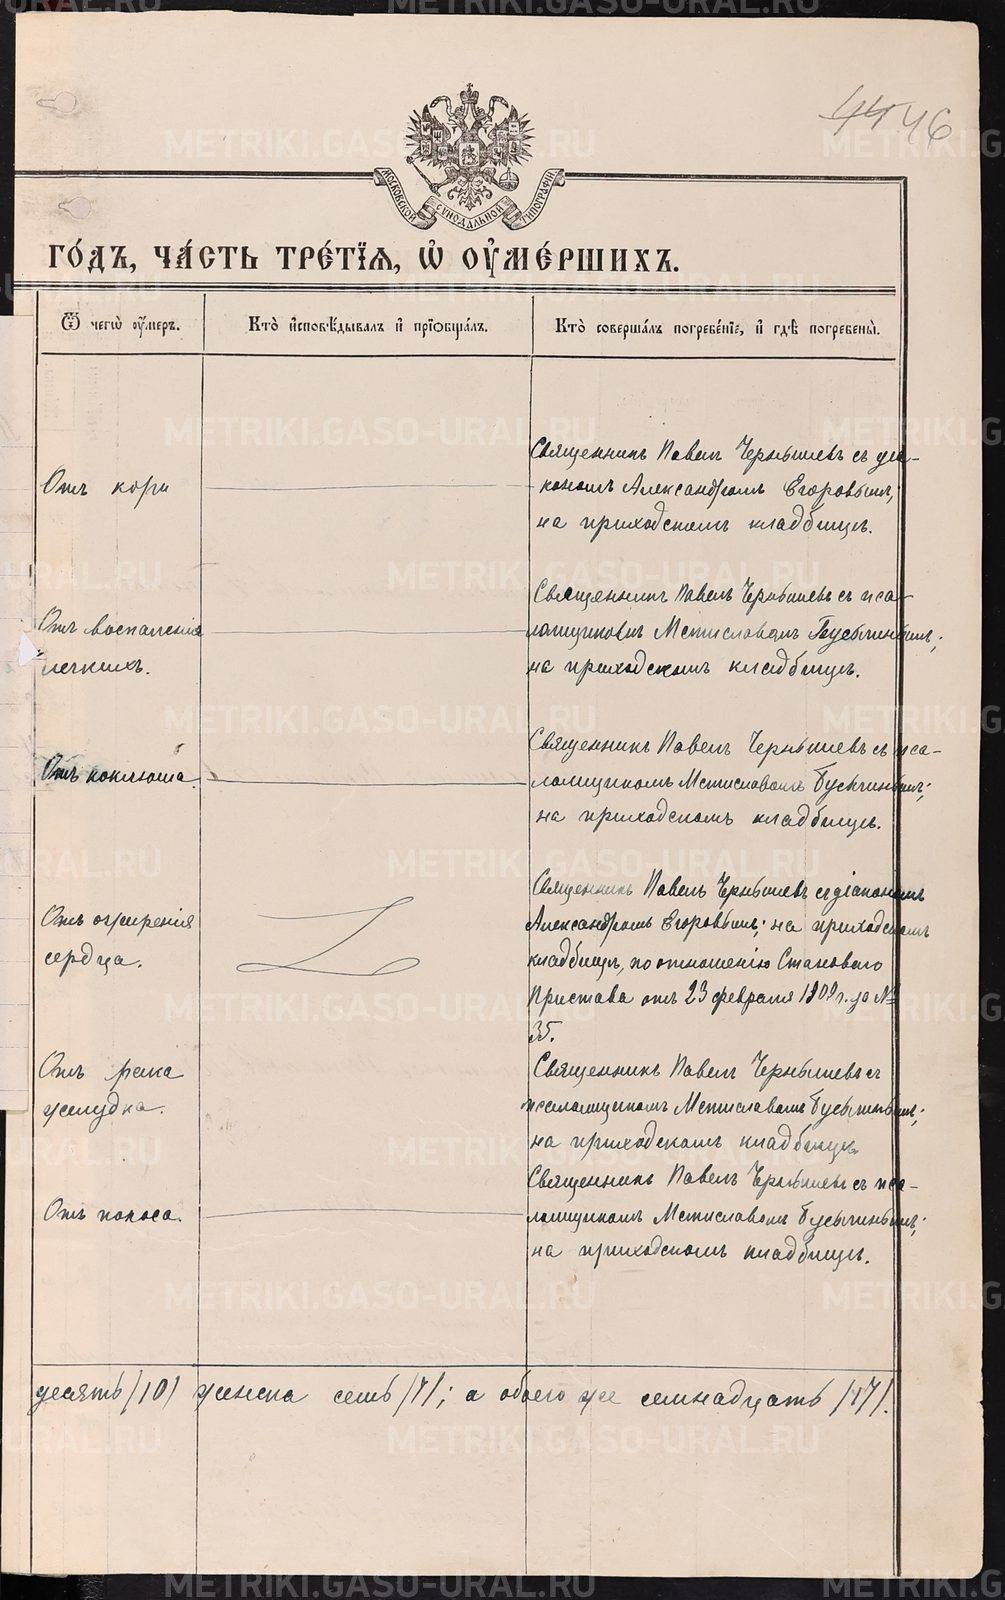 4446
МОСКОВСКОЙ СУНОДАЛЬНОЙ ТИПОГРАФІИ
ГО́ДЪ, ЧА́СТЬ ТРЕ́ТІЯ, Ѡ҆ ОУ҆МЕ́РШИХЪ.
Ѿ чегѡ̀ оу҆́меръ.
Кто̀ и҆сповѣ́дывалъ и҆ прїѡбща́лъ.
Кто̀ соверша́лъ погребе́нїе, и҆ гдѣ̀ погребены̀.
Отъ кори
Священникъ Павелъ Чернышевъ съ диа-
кономъ Александромъ Егоровымъ;
на приходскомъ кладбищѣ.
Отъ воспаленія
легкихъ.
Священникъ Павелъ Чернышевъ съ пса-
ломщикомъ Мстиславомъ Бусыгинымъ;
на приходскомъ кладбищѣ.
Отъ коклюша.
Священникъ Павелъ Чернышевъ съ пса-
ломщикомъ Мстиславомъ Бусыгинымъ;
на приходскомъ кладбищѣ.
Отъ ожиренія
сердца.
Священникъ Павелъ Чернышевъ съ діакономъ
Александромъ Егоровымъ; на приходскомъ
кладбищѣ, по отношенію Становаго
Пристава отъ 23 февраля 1909 г. за №
35.
Отъ рака
желудка.
Священникъ Павелъ Чернышевъ съ
псаломщикомъ Мстиславомъ Бусыгинымъ;
на приходскомъ кладбищѣ.
Отъ поноса.
Священникъ Павелъ Чернышевъ съ пса-
ломщикомъ Мстиславомъ Бусыгинымъ;
на приходскомъ кладбищѣ.
десять /10/ женска семь /7/; а обоего же семнадцать /17/.
METRIKI.GASO-URAL.RU